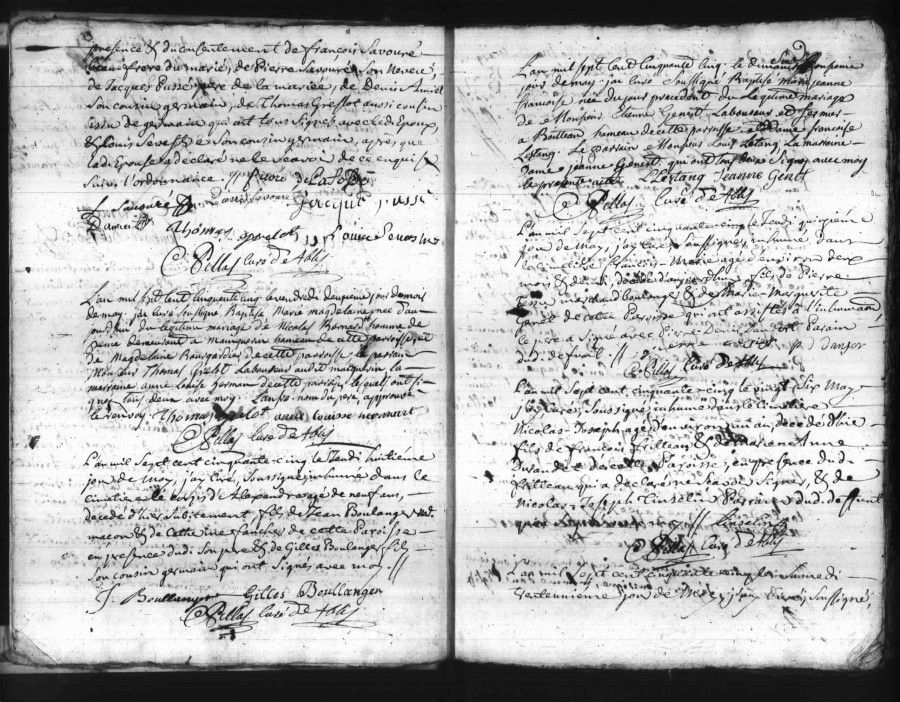 presence & du consentement de francois Savouré
beau frere du marié, de Pierre Savouré son Neveu,
de Jacques Pussé pere de la mariée, de Denis
son cousin germain, de Thomas Grelot aussi cousin
issu de germain qui ont tous signés avec le d. Epoux,
& Louis Sevestre son cousin germain, après que
lad. Epouse a déclaré ne le scavoir de ce enquise
Suiv. l'ordonnance
Le Savouré Louis Savouré Jacque pussé
Damien Thomas grelot Louis Sevestre
Pillas Curé d'Ablis
L'an mil sept cent cinquante cinq le vendredi deuxieme jour du mois
de may, jai Curé Soussigné Baptisé Marie magdelaine née d'au-
jourd'hui du legitime mariage de Nicolas homme de
peine demeurant a hameau de cette parroisse, et
de Magdelaine de cette parroisse, le parrain
Monsieur Thomas Grelot Laboureur audit la
maraine anne Louise germon de cette parroisse, lesquels ont si-
gnez tous deux avec moy. nom du pere, approuvé
le renvoy Thomas grelot
Pillas Curé d'Ablis
L'an mil Sept cent cinquante-cinq le Jeudi huitieme
jour de may, j'ay Curé, Soussigné, inhumé dans le
cimetiere le corps d'Alexandre agé de neuf ans,
décédé d'hier Subitement fils de Jean Boulanger
macon & de Catherine fauchere de cette Paroisse
en presence dud. Son pere & de Gilles Boulanger fils
Son cousin germain qui ont Signés avec moy
J. Boullanger Gilles Boullanger
Pillas Curé d'Ablis
L'an mil sept cent cinquante cinq le dimanche onzieme
jour de may, jai Curé Soussigné Baptisé Marie jeanne
francoise née du jour precedent du legitime mariage
de Monsieur Etienne Genest Laboureur
a Boulleau hameau de cette parroisse et Dame francoise
Lestang. Le parrain Monsieur Louis Lestang La marraine
Dame jeanne Genest qui ont tous deux Signés avec moy
le present acte LLestang Jeanne Genet
Pillas Curé d'Ablis
L'an mil Sept cent cinquante cinq le Jeudi quinzieme
jour de may, j'ay Curé, Soussigné, inhumé dans
le cimetiere francois-Marie agé d'environ deux
mois & demi, décédé d'aujourd'hui fils de Pierre
marchand boulanger & de Marie-Marguerite
Genet de cette Paroisse qui ont assistés a l'inhumation
le pere a Signé avec Pierre Denis Parain
dud. defunt
Pillas Curé d'Ablis
L'an mil Sept cent cinquante-cinq le vingt Six May
j'ay Curé, Soussigné, inhumé dans le cimetiere
Nicolas-Joseph agé d'environ un an, decedé d'hier
fils de francois filleau & de Marie Anne
Durand de cette Paroisse, en presence dud.
filleau qui a declaré ne scavoir Signer, & de
Nicolas Joseph Tinselin Parrain dud. defunt
qui a Signé avec moy Tinselin
Pillas Curé d'Ablis
L'an mil Sept cent cinquante cinq le Samedi
trente unieme jour de May, j'ay Curé, Soussigné,